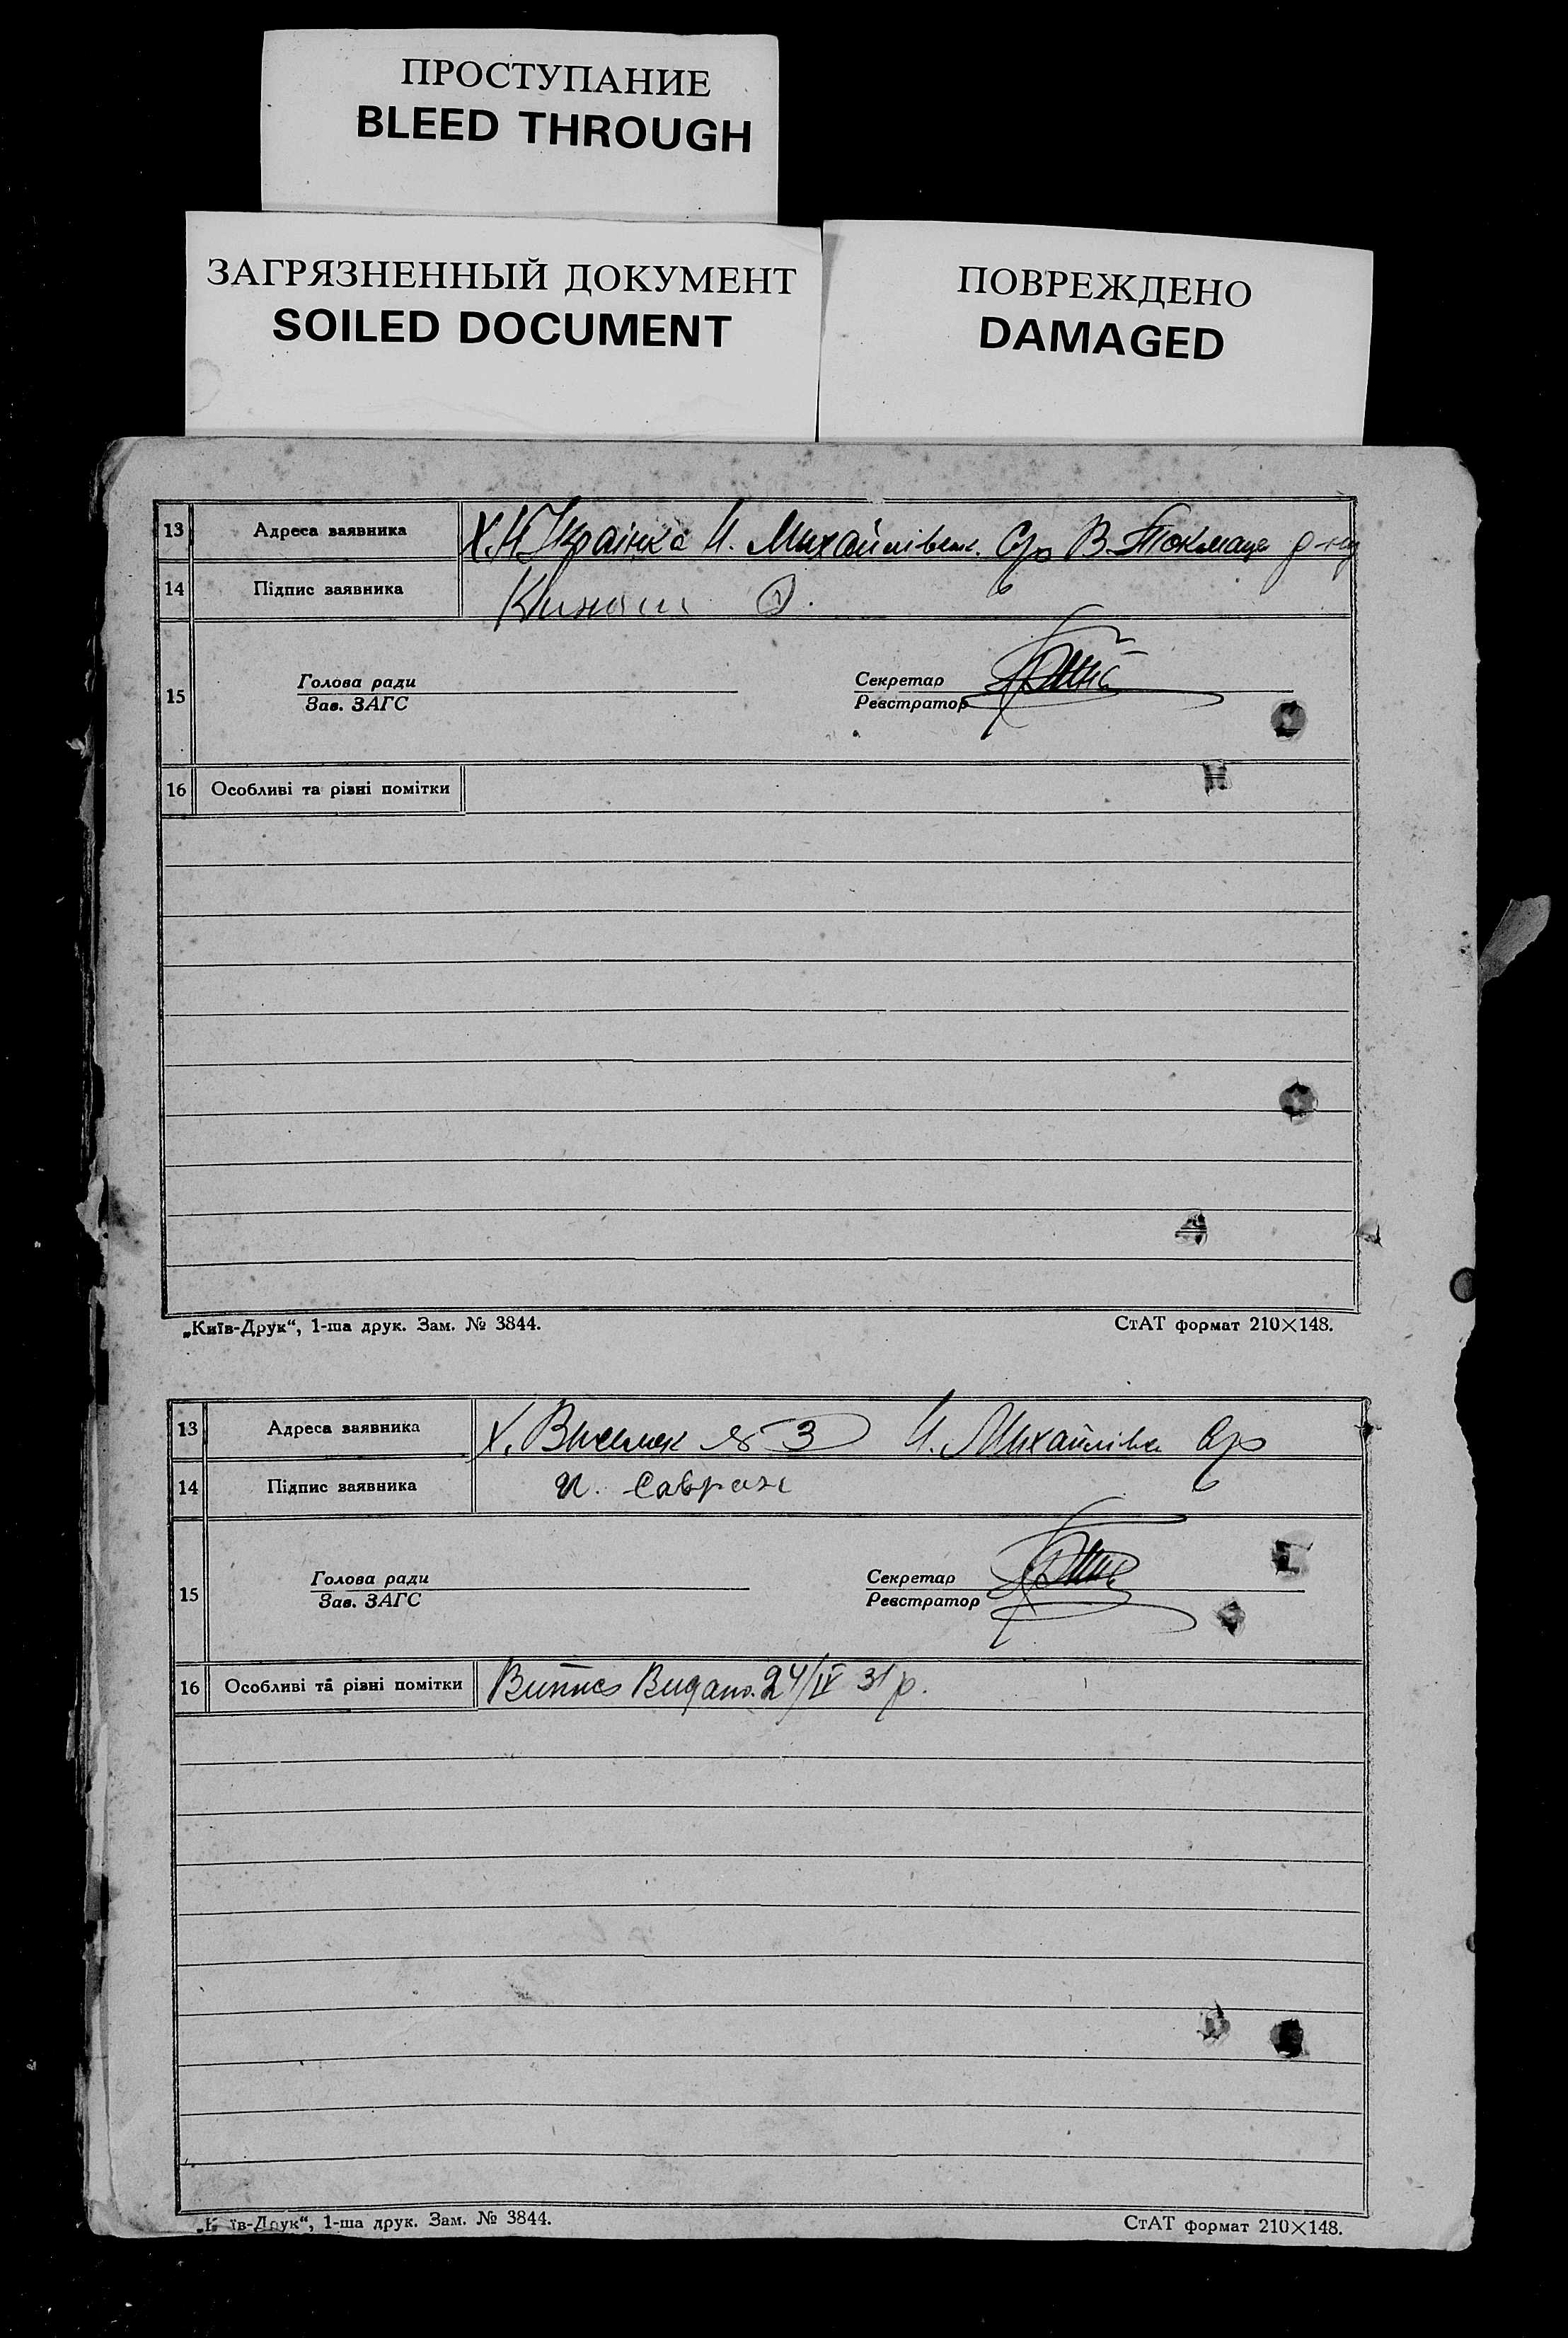 ПРОСТУПАНИЕ
BLEED THROUGH
ЗАГРЯЗНЕННЫЙ ДОКУМЕНТ
SOILED DOCUMENT
ПОВРЕЖДЕНО
DAMAGED
13 Адреса заявника Х. Н Українка Ч. Михайлівськ. С/р В. Токмац р-ну
14 Підпис заявника
15 Голова ради Секретар
Зав. ЗАГС Реєстратор
16 Особливі та різні помітки
„Київ-Друк“, 1-ша друк. Зам. № 3844. СтАТ формат 210×148.
13 Адреса заявника Х. № 3 Ч. Михайлівка С/р
14 Підпис заявника Савран
15 Голова ради Секретар
Зав. ЗАГС Реєстратор
16 Особливі та різні помітки Випис Видано. 24/IV 31 р.
„К їв-Друк“, 1-ша друк. Зам. № 3844. СтАТ формат 210×148.